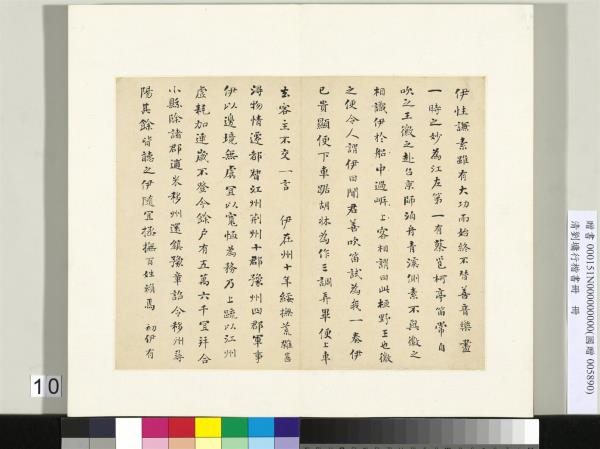 伊性謙素雖有大功而始終不替善音樂盡
一時之妙為江左第一有蔡邕柯亭笛常自
吹之王徽之赴召京師泊舟青溪側素不與徽之
相識伊於船中過岸上客相謂曰此桓野王也徽
之便令人謂伊曰聞君善吹笛試為我一奏伊
已貴顯便下車踞胡牀為作三調弄畢便上車
去客主不交一言 伊在州十年綏撫荒雜甚
得物情遷都督江州荊州十郡豫州四郡軍事
伊以邊境無虞宜以寬恤為務乃上疏以江州
虛耗加連歲不登今餘戶有五萬六千宜并合
小縣除諸郡逋米移州還鎮豫章詔令移州尋
陽其餘皆聽之伊隨宜拯撫百姓賴焉 初伊有
10
贈書 000151N000000000(國贈 005890)
清劉墉行楷書冊 冊